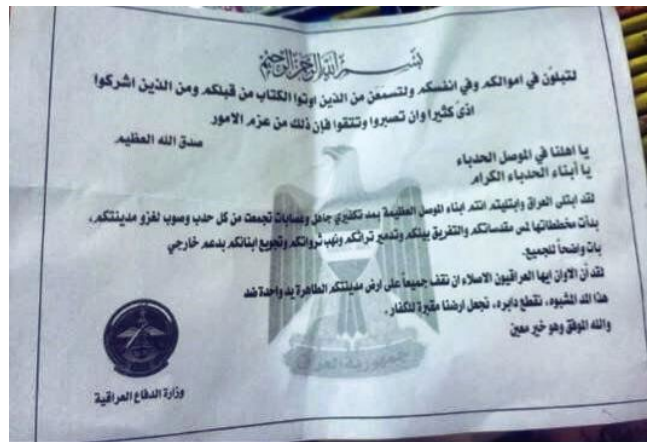 بسم الله الرحمن الرحيم
لتبلوّن في اموالكم وفي انفسكم ولتسمعن من الذين اوتوا الكتاب من قبلكم ومن الذين اشركوا
اذىً كثيرا وان تصبروا وتتقوا فإن ذلك من عزم الامور
صدق الله العظيم
يا اهلنا في الموصل الحدباء
يا أبناء الحدباء الكرام
لقد ابتلى العراق وابتليتم انتم ابناء الموصل العظيمة بمد تكفيري جاهل وعصابات تجمعت من كل حدب وصوب لغزو مدينتكم،
بدأت مخططاتها لمس مقدساتكم والتفريق بينكم وتدمير تراثكم ونهب ثرواتكم وتجويع ابنائكم بدعم خارجي
بات واضحاً للجميع.
لقد أن الاوان ايها العراقيون الاصلاء ان نقف جميعاً على ارض مدينتكم الطاهرة يد واحدة ضد
هذا المد المشبوه، نقطع دابره، نجعل ارضنا مقبرة للكفار.
والله الموفق وهو خير معين
جمهورية العراق
وزارة الدفاع العراقية